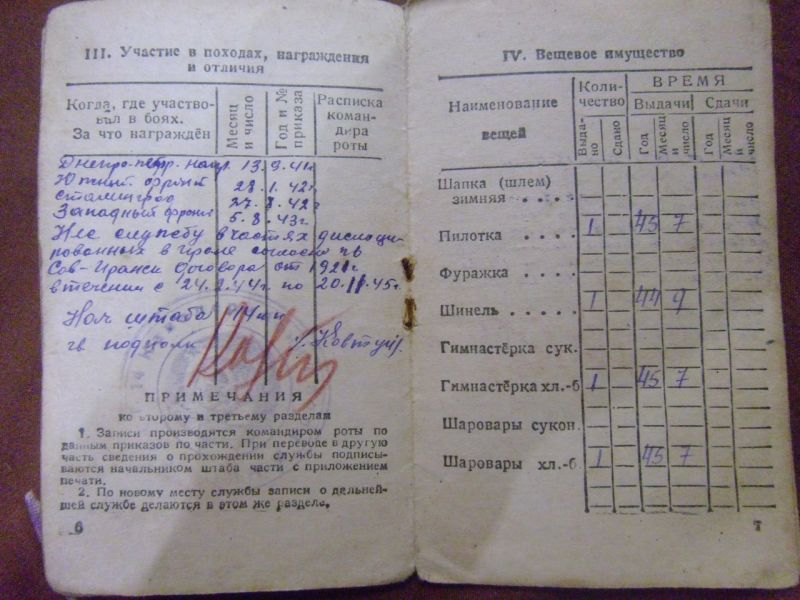 III. Участие в походах, награждения
и отличия
Когда, где участво-
вал в боях.
За что награждён
Месяц
и число
Год и №
приказа
Расписка
коман-
дира
роты
Днепро-петр. напр. 13.9.41г
Южный фронт 28.1.42г
Сталинград 27.8.42г
Западный фронт 5.8.43г
Нес службу в частях дислоци
рованных в Иране согласно
Сов-Иранск договора от 1921г
в течении с 24.2.44г по 20.11.45г.
Нач штаба 14
гв подполк Ковтун
ПРИМЕЧАНИЯ
ко второму и третьему разделам
1. Записи производятся командиром роты по
данным приказов по части. При переводе в другую
часть сведения о прохождении службы подписы-
ваются начальником штаба части с приложением
печати.
2. По новому месту службы записи о дальней-
шей службе делаются в этом же разделе.
6
IV. Вещевое имущество
Наименование
вещей
Коли-
чество
ВРЕМЯ
Выдачи Сдачи
Выда-
но
Сдано
Год
Месяц
и
число
Год
Месяц
и
число
Шапка (шлем)
зимняя . . . .
Пилотка . . . . 1 45 7
Фуражка . . . .
Шинель . . . . . 1 44 9
Гимнастёрка сук.
Гимнастёрка хл.-б 1 45 7
Шаровары сукон.
Шаровары хл.-б. 1 45 7
7